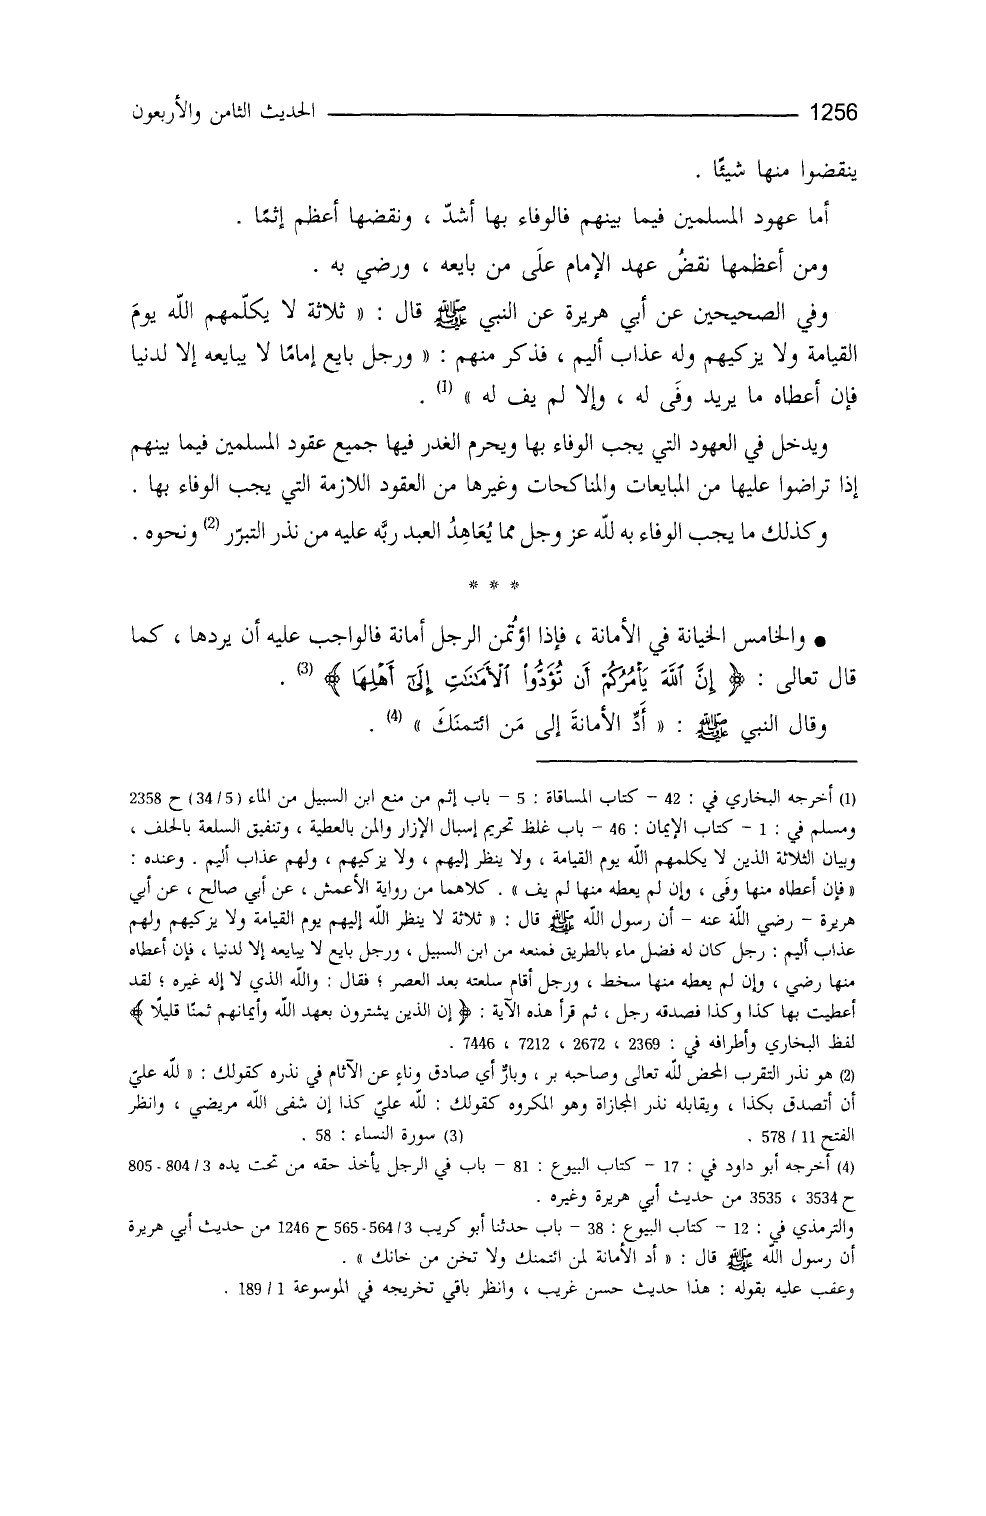 1256 الحديث الثامن والأربعون
ينقضوا منها شيئًا .
أما عهود المسلمين فيما بينهم فالوفاء بها أشدّ ، ونقضها أعظم إثمًا .
ومن أعظمها نقضُ عهد الإمام علَى من بايعه ، ورضي به .
وفي الصحيحين عن أبي هريرة عن النبي ﷺ قال : « ثلاثة لا يكلّمهم اللّه يومَ
القيامة ولا يزكيهم وله عذاب أليم ، فذكر منهم : « ورجل بايع إمامًا لا يبايعه إلا لدنيا
فإن أعطاه ما يريد وفَى له ، وإلا لم يف له » (1) .
ويدخل في العهود التي يجب الوفاء بها ويحرم الغدر فيها جميع عقود المسلمين فيما بينهم
إذا تراضوا عليها من المبايعات والمناكحات وغيرها من العقود اللازمة التي يجب الوفاء بها .
وكذلك ما يجب الوفاء به للّه عز وجل مما يُعَاهِدُ العبد ربَّه عليه من نذر التبرّر (2) ونحوه .
* * *
● والخامس الخيانة في الأمانة ، فإذا اؤتُمن الرجل أمانة فالواجب عليه أن يردها ، كما
قال تعالى : ﴿ إِنَّ ٱللَّهَ يَأْمُرُكُمْ أَن تُؤَدُّوا۟ ٱلْأَمَـٰنَـٰتِ إِلَىٰٓ أَهْلِهَا ﴾ (3) .
وقال النبي ﷺ : « أَدِّ الأمانةَ إلى مَن ائتمنَكَ » (4) .
(1) أخرجه البخاري في : 42 – كتاب المساقاة : 5 – باب إثم من منع ابن السبيل من الماء (5/ 34) ح 2358
ومسلم في : 1 – كتاب الإيمان : 46 – باب غلظ تحريم إسبال الإزار والمن بالعطية ، وتنفيق السلعة بالحلف ،
وبيان الثلاثة الذين لا يكلمهم اللّه يوم القيامة ، ولا ينظر إليهم ، ولا يزكيهم ، ولهم عذاب أليم . وعنده :
« فإن أعطاه منها وفَى ، وإن لم يعطه منها لم يف » . كلاهما من رواية الأعمش ، عن أبي صالح ، عن أبي
هريرة – رضي اللّه عنه – أن رسول اللّه ﷺ قال : « ثلاثة لا ينظر اللّه إليهم يوم القيامة ولا يزكيهم ولهم
عذاب أليم : رجل كان له فضل ماء بالطريق فمنعه من ابن السبيل ، ورجل بايع لا يبايعه إلا لدنيا ، فإن أعطاه
منها رضي ، وإن لم يعطه منها سخط ، ورجل أقام سلعته بعد العصر ؛ فقال : واللّه الذي لا إله غيره ؛ لقد
أعطيت بها كذا وكذا فصدقه رجل ، ثم قرأ هذه الآية : ﴿ إن الذين يشترون بعهد اللّه وأيمانهم ثمنًا قليلًا ﴾
لفظ البخاري وأطرافه في : 2369 ، 2672 ، 7212 ، 7446 .
(2) هو نذر التقرب المحض للّه تعالى وصاحبه بر ، وبارٌّ أي صادق وناءٍ عن الآثام في نذره كقولك : « للّه عليّ
أن أتصدق بكذا ، ويقابله نذر المجازاة وهو المكروه كقولك : للّه عليّ كذا إن شفى اللّه مريضي ، وانظر
الفتح 11 / 578 . (3) سورة النساء : 58 .
(4) أخرجه أبو داود في : 17 – كتاب البيوع : 81 – باب في الرجل يأخذ حقه من تحت يده 3/ 804 - 805
ح 3534 ، 3535 من حديث أبي هريرة وغيره .
والترمذي في : 12 – كتاب البيوع : 38 – باب حدثنا أبو كريب 3/ 564 - 565 ح 1246 من حديث أبي هريرة
أن رسول اللّه ﷺ قال : « أد الأمانة لمن ائتمنك ولا تخن من خانك » .
وعقب عليه بقوله : هذا حديث حسن غريب ، وانظر باقي تخريجه في الموسوعة 1 / 189 .